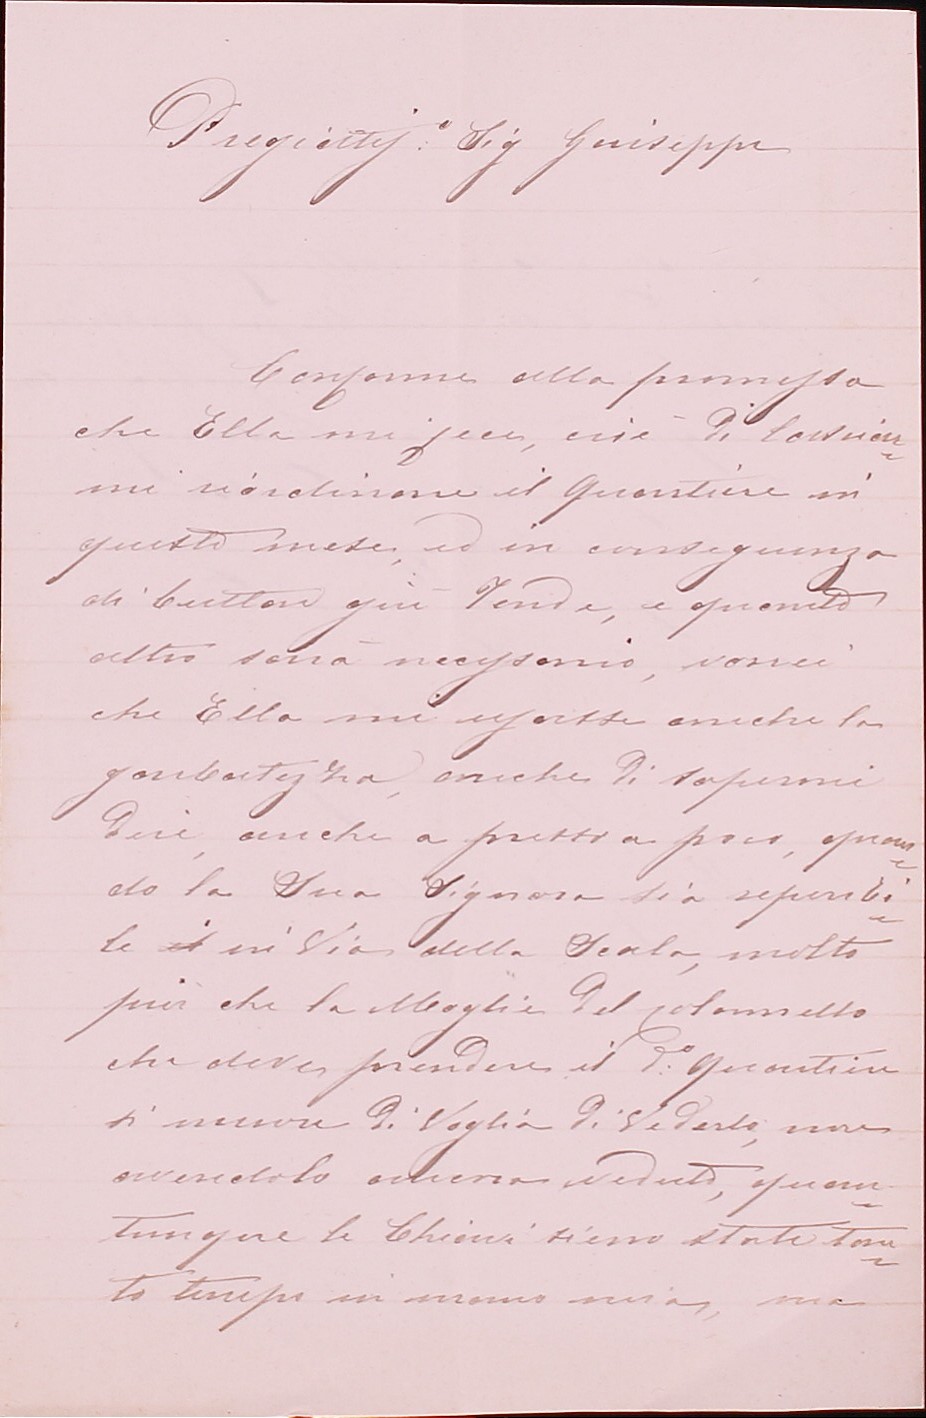 Pregiattiss.º Sig Giuseppe
Conforme alla promessa
che Ella mi fece, cioè di lasciar=
mi riordinare il Quartiere in
questo mese, ed in conseguenza
di buttar giù Tende, e quanto
altro sarà necessario, vorrei
che Ella mi usasse anche la
garbatezza, anche di sapermi
dire, anche a presso a poco, quan=
do la Sua Signora sia reperibi=
le in Via della Scala, molto
più che la Moglie del colonnello
che deve prendere il d.º Quartiere
si muore di Voglia di Vederlo, non
avendolo ancora veduto, quan=
tunque le Chiavi sieno state tan=
to tempo in mano mia, ma